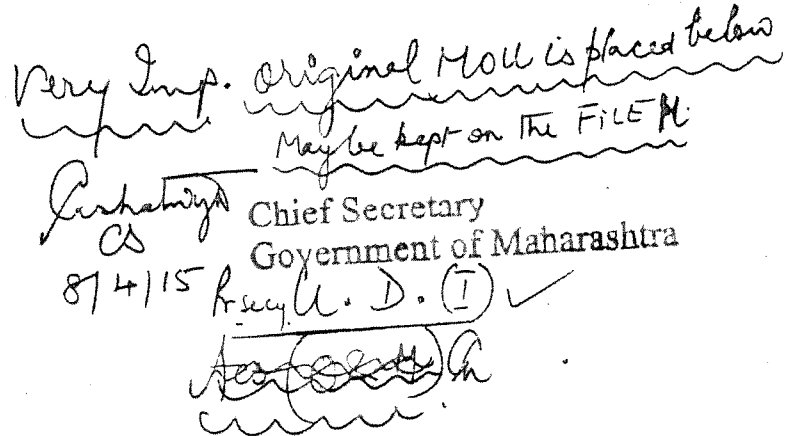 Very Imp. Original MOU is placed below
May be kept on the FILE
Chief Secretary
CS
Government of Maharashtra
8/4/15 Pr. secy. U. D. (I) ✓